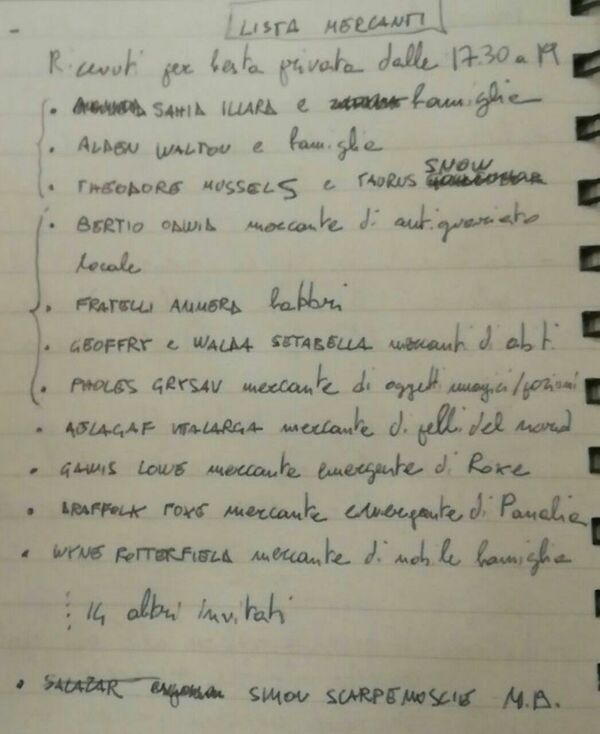 LISTA MERCANTI
Ricevuti per festa privata dalle 17.30 a 19
• SAHIA ILLARA e famiglia
• ALDEN WALTON e famiglia
• THEODORE MUSSELS e TAURUS SNOW
• BERTIO mercante di antiquariato
locale
• FRATELLI AMMERA fabbri
• GEOFFRY e WALDA SETABELLA mercanti di abiti
• PHOLES GRYSAV mercante di oggetti magici/pozioni
• mercante di pelli del nord
• GAWIS LOWE mercante emergente di Roxe
• mercante emergente di Panalia
• WYNE POTTERFIELD mercante di nobile famiglia
14 altri invitati
• SALAZAR SIMON SCARPEMOSCIE M.A.